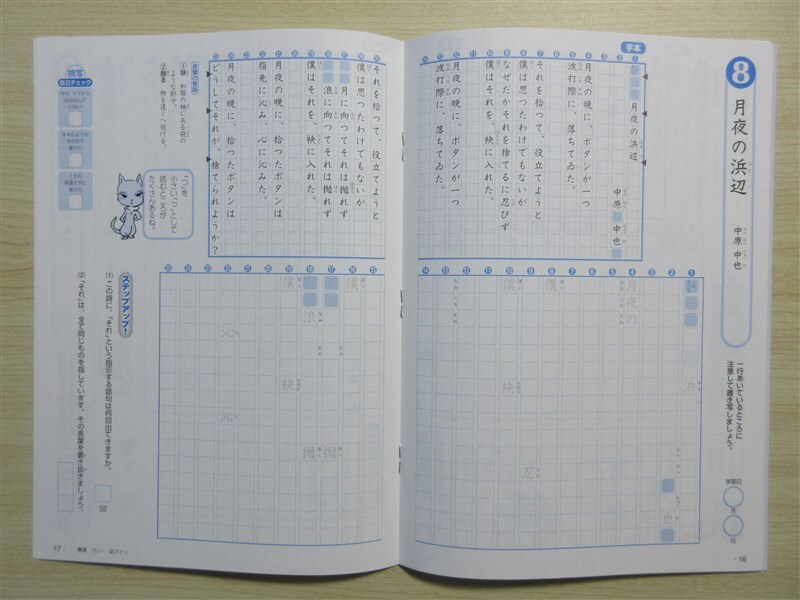 8
月夜の浜辺
中原 中也
一行あいているところに
注意して書き写しましょう。
学習日
月
日
手本
月夜の浜辺
中原 中也
月夜の晩に、ボタンが一つ
波打際に、落ちてゐた。
それを拾つて、役立てようと
僕は思つたわけでもないが
なぜだかそれを捨てるに忍びず
僕はそれを、袂に入れた。
月夜の晩に、ボタンが一つ
波打際に、落ちてゐた。
それを拾つて、役立てようと
僕は思つたわけでもないが
月に向つてそれは抛れず
浪に向つてそれは抛れず
僕はそれを、袂に入れた。
月夜の晩に、拾つたボタンは
指先に沁み、心に沁みた。
月夜の晩に、拾つたボタンは
どうしてそれが、捨てられようか?
言葉の意味
①袂 和服の袖にある袋の
ような部分。
②抛る 物を遠くへ投げる。
「つ」を
小さい「っ」として
読むところが
たくさんあるね。
視写
自己チェック
月夜の
浜
僕
僕
袂
忍
也
僕
浪
僕
袂
抛
抛
心
心
ステップアップ!
(1) この詩に、「それ」という指示する語句は何回出てきますか。
回
(2) 「それ」は、全て同じものを指しています。その言葉を書き抜きましょう。
16
17